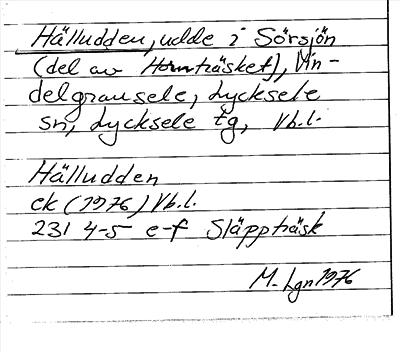 Hälludden, udde i Sörsjön
(del av Hornträsket), Vin-
delgransele, Lycksele
sn, Lycksele tg, Vb.l.
Hälludden
ek (1976) Vb.l.
231 4-5 e-f Släppträsk
M. Lgn 1976